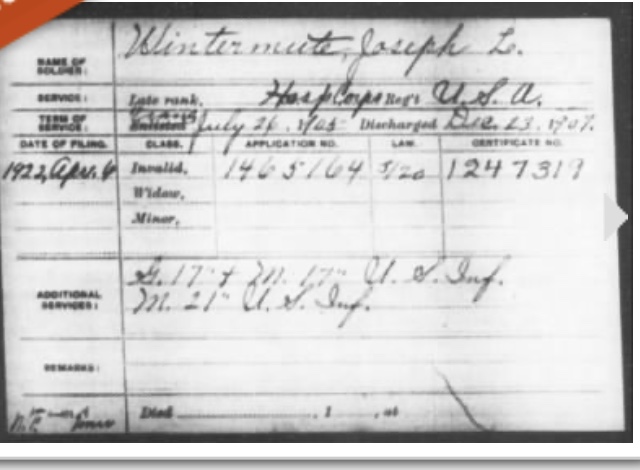 NAME OF SOLDIER: Wintermute, Joseph L.
SERVICE: Late rank, Hosp Corps Reg't U. S. A.
TERM OF SERVICE: Enlisted July 26, 1905 Discharged Dec. 23, 1907.
DATE OF FILING. CLASS. APPLICATION NO. LAW. CERTIFICATE NO.
1922, Apr. 6 Invalid, 1465164 5/20 1247319
Widow,
Minor,
ADDITIONAL SERVICES: G. 17" + M. 17" U. S. Inf.
M. 21" U. S. Inf.
REMARKS:
Died , 1 , at